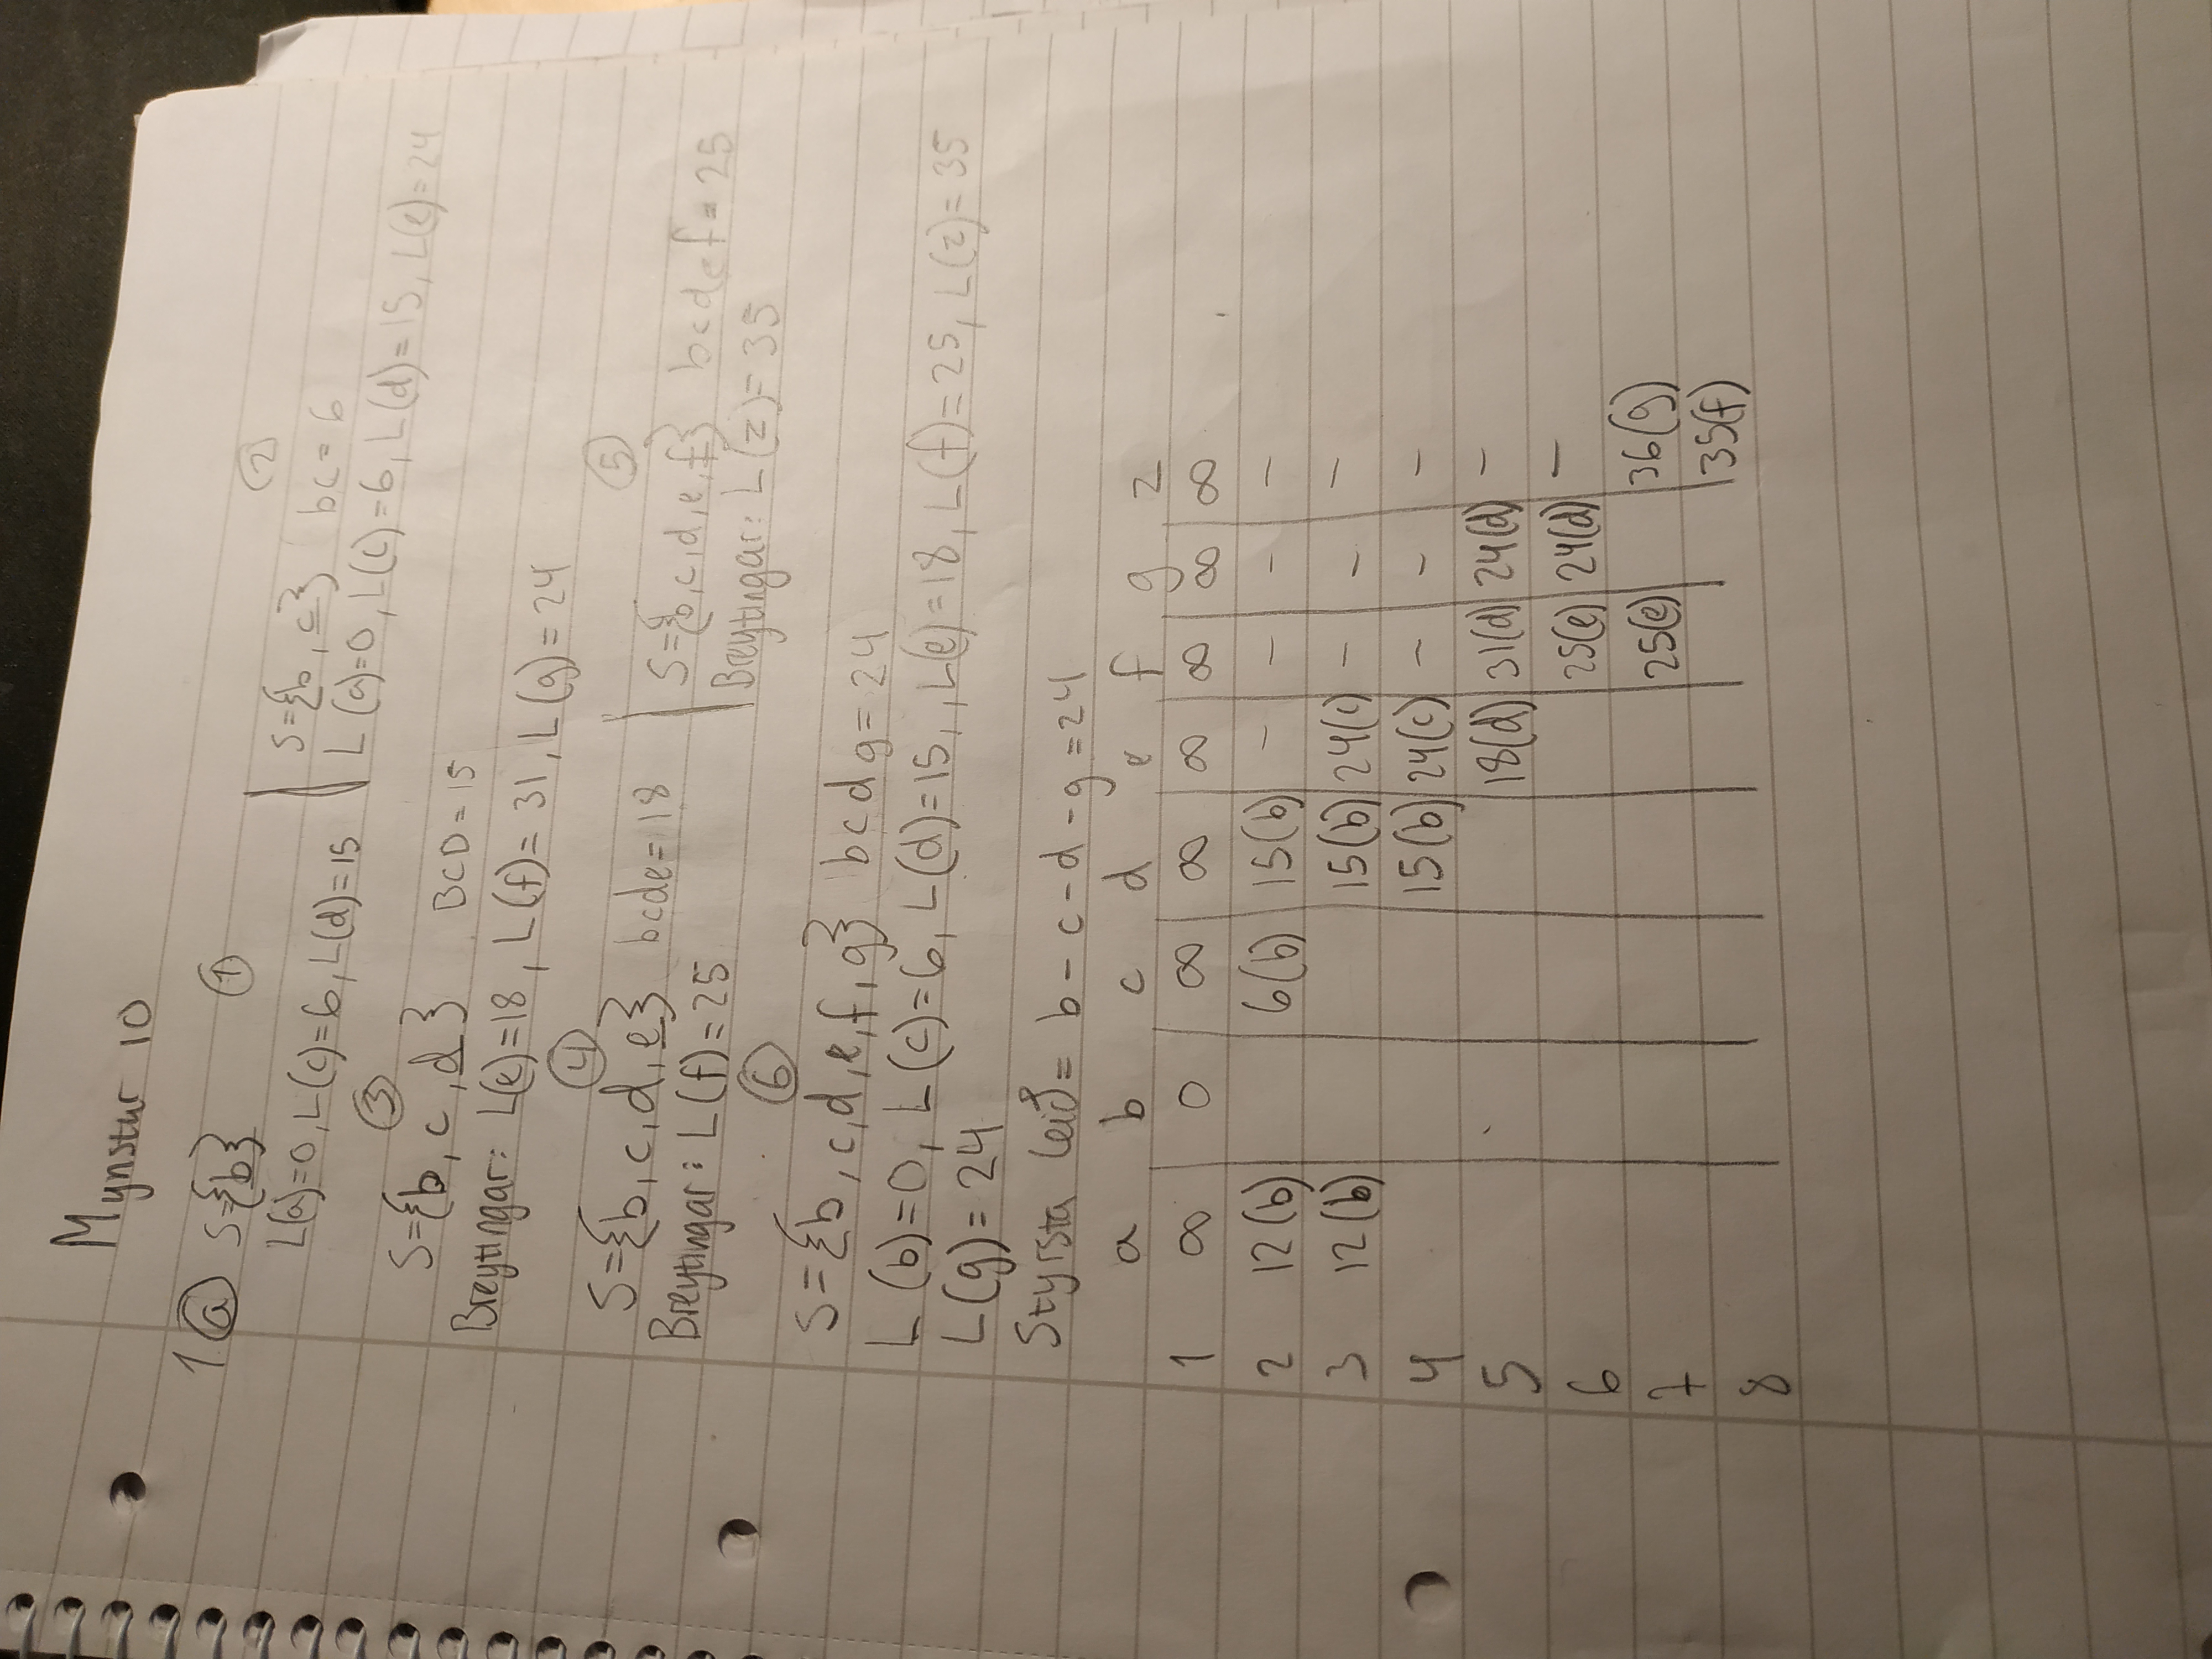 Mynstur 10
1. a S={b} 1
L(a)=0, L(c)=6, L(d)=15
2
S={b, c} bc=6
L(a)=0, L(c)=6, L(d)=15, L(e)=24
3
S={b, c, d} BCD=15
Breytingar: L(e)=18, L(f)=31, L(g)=24
4
S={b, c, d, e} bcde=18
Breytingar: L(f)=25
5
S={b, c, d, e, f} bcdef=25
Breytingar: L(z)=35
6
S={b, c, d, e, f, g} bcdg=24
L(b)=0, L(c)=6, L(d)=15,, L(e)=18, L(f)=25, L(z)=35
L(g)=24
Styrsta leið= b-c-d-g=24
a b c d e f g z
1 ∞ 0 ∞ ∞ ∞ ∞ ∞ ∞
2 12(b) 6(b) 15(b) - - - -
3 12(b) 15(b) 24(c) - - -
4 15(b) 24(c) - - -
5 18(d) 31(d) 24(d) -
6 25(e) 24(d) -
7 25(e) 36(g)
35(f)
8